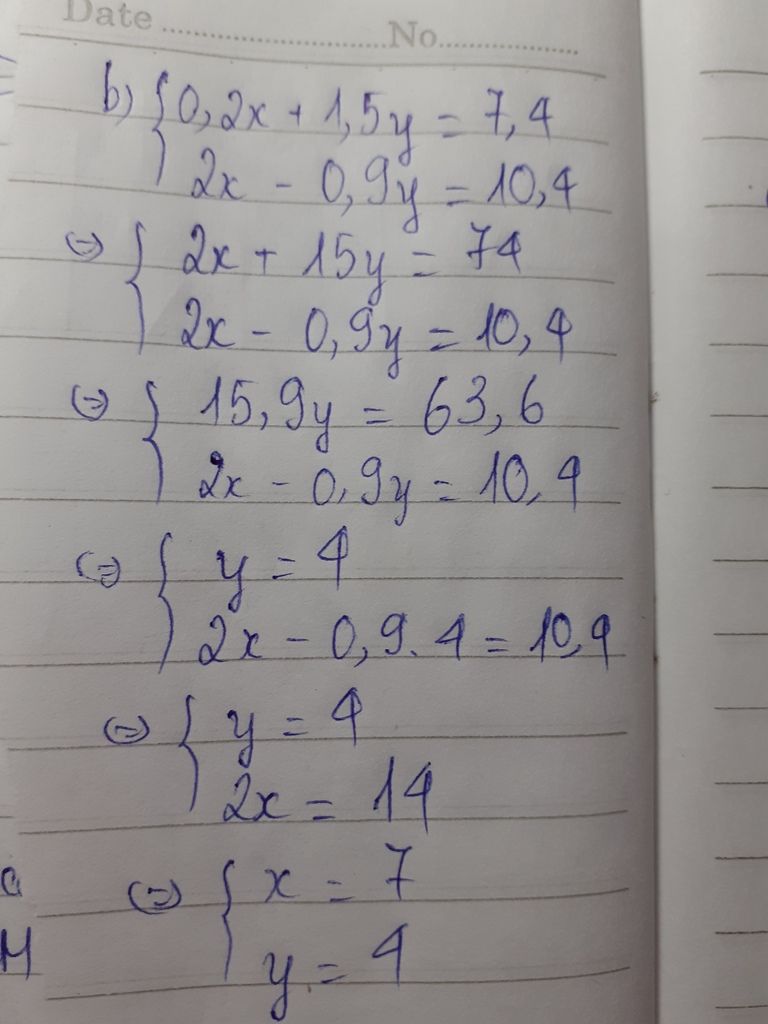 Date ........................No....................
b) { 0,2x + 1,5y = 7,4
2x - 0,9y = 10,4
(=) { 2x + 15y = 74
2x - 0,9y = 10,4
(=) { 15,9y = 63,6
2x - 0,9y = 10,4
(=) { y = 4
2x - 0,9.4 = 10,4
(=) { y = 4
2x = 14
(=) { x = 7
y = 4